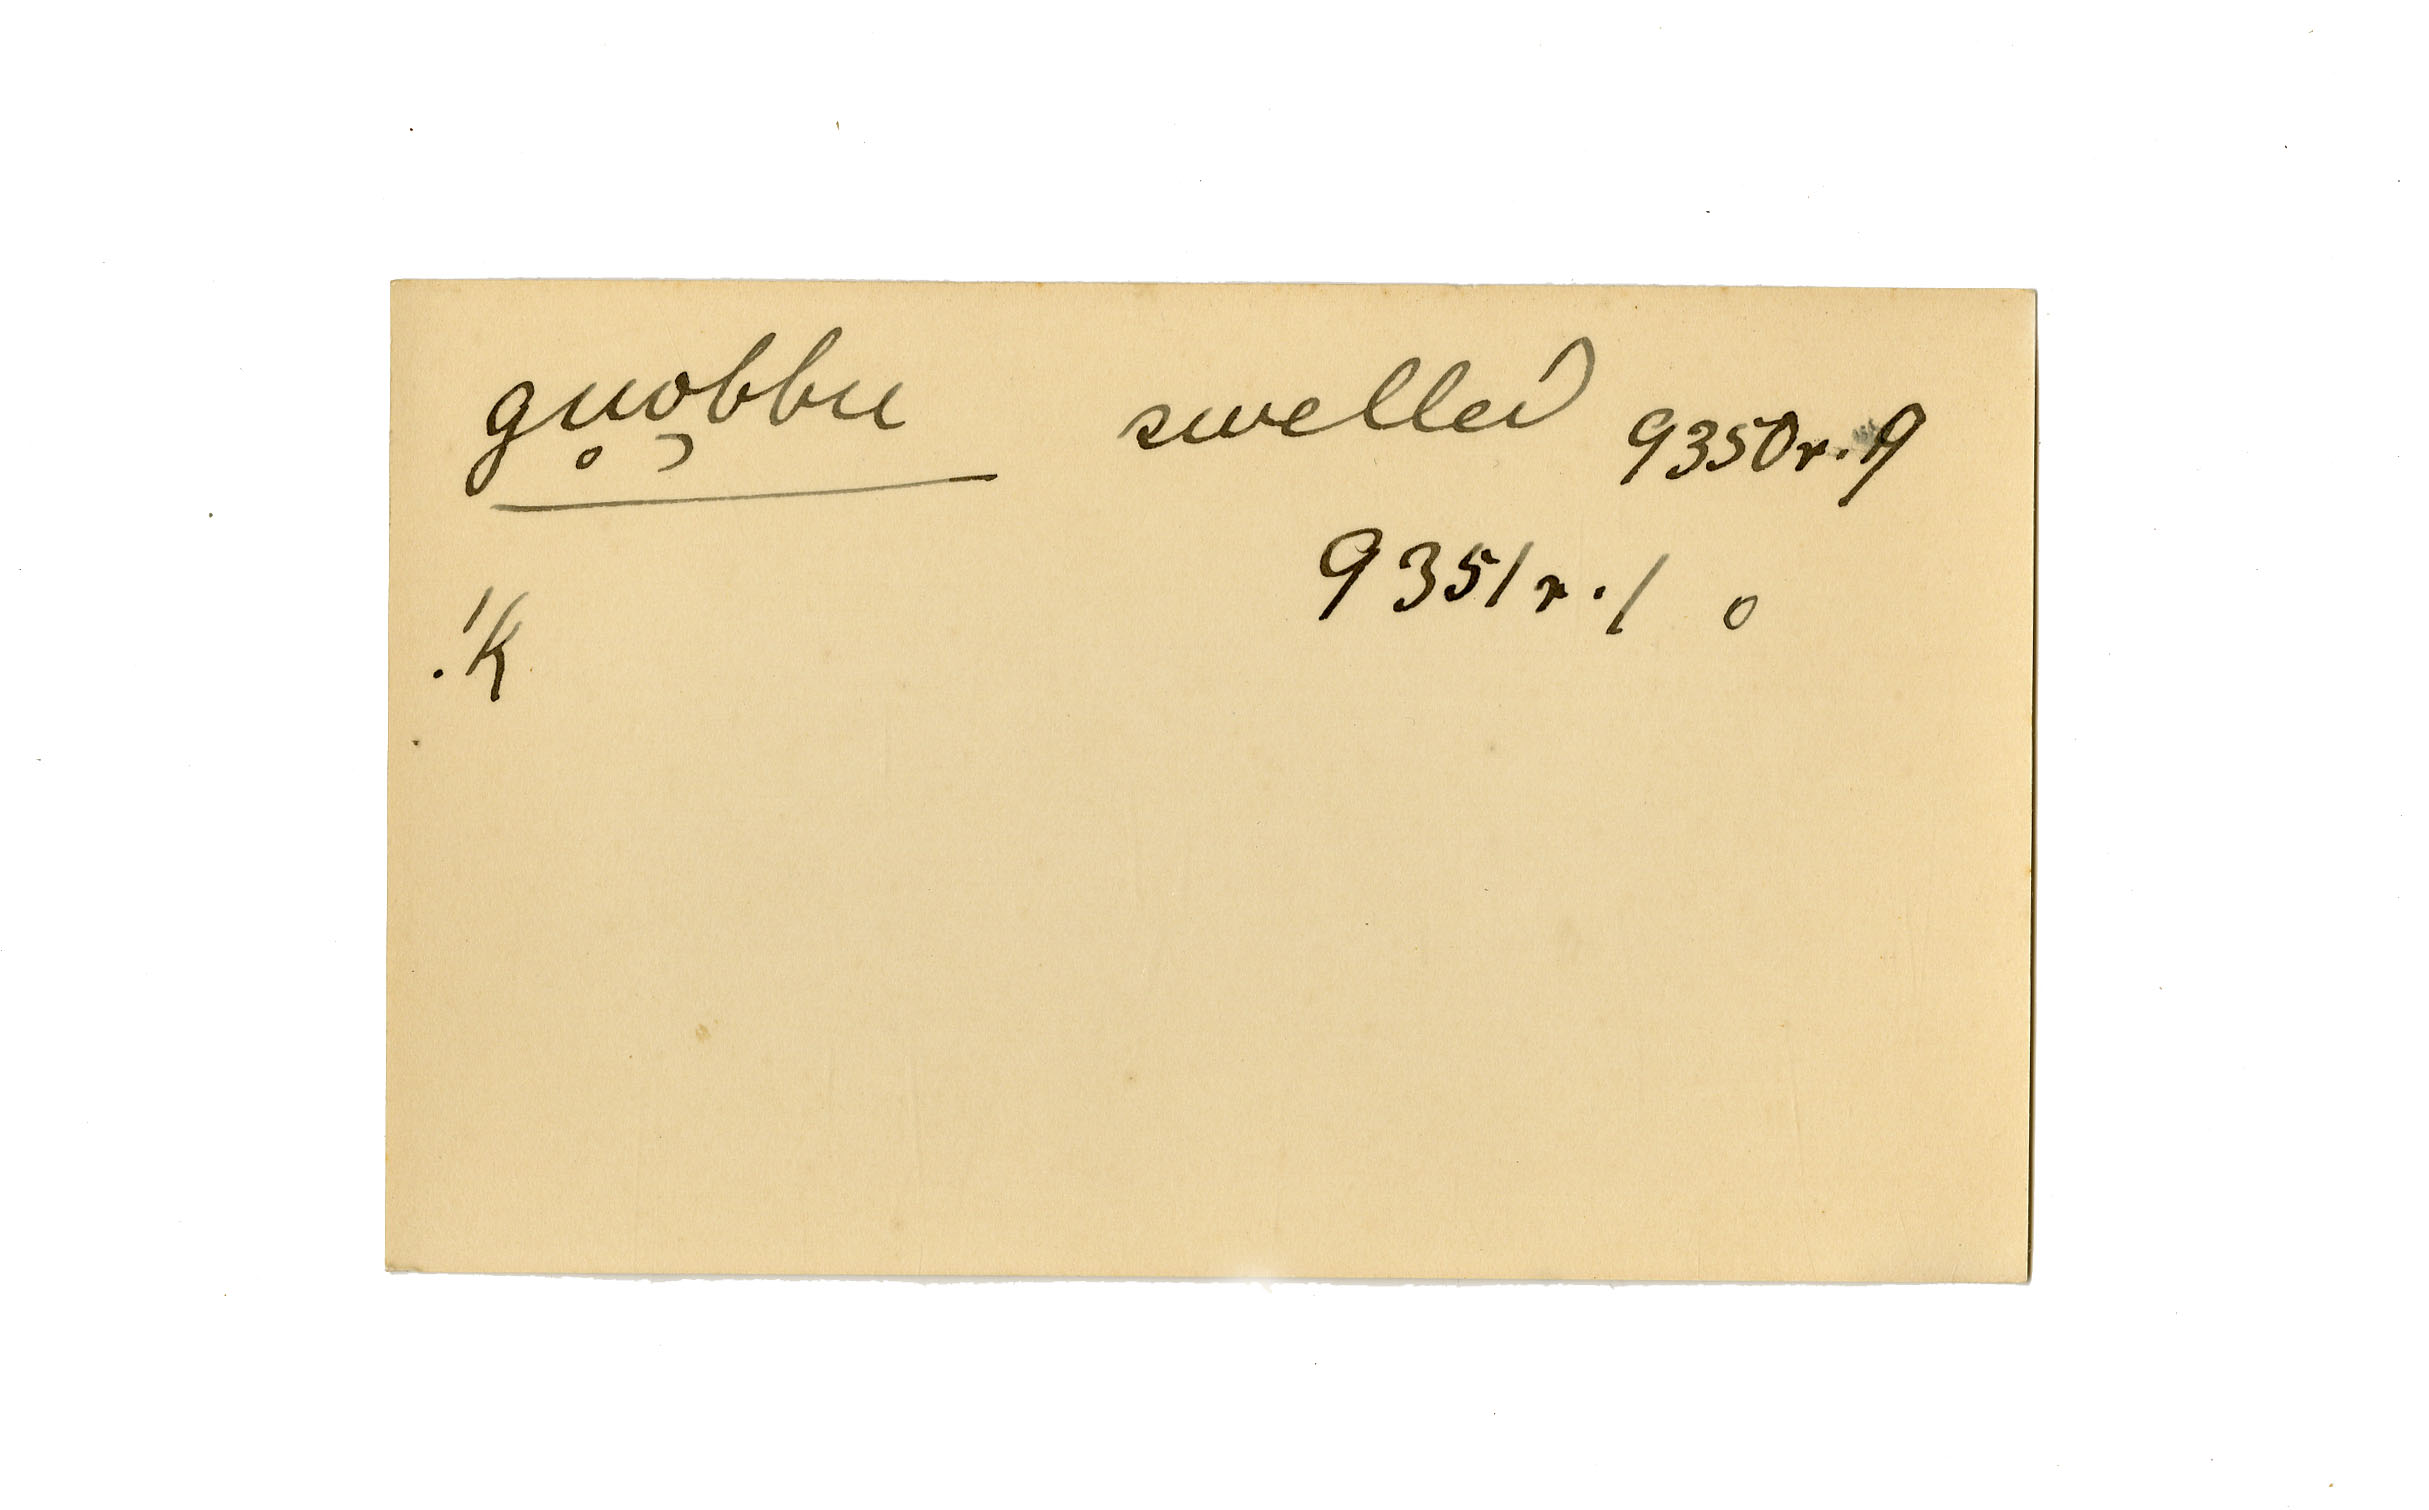 gu̥o̡bbu swelled 9350r. 9
9351r. 10
!k